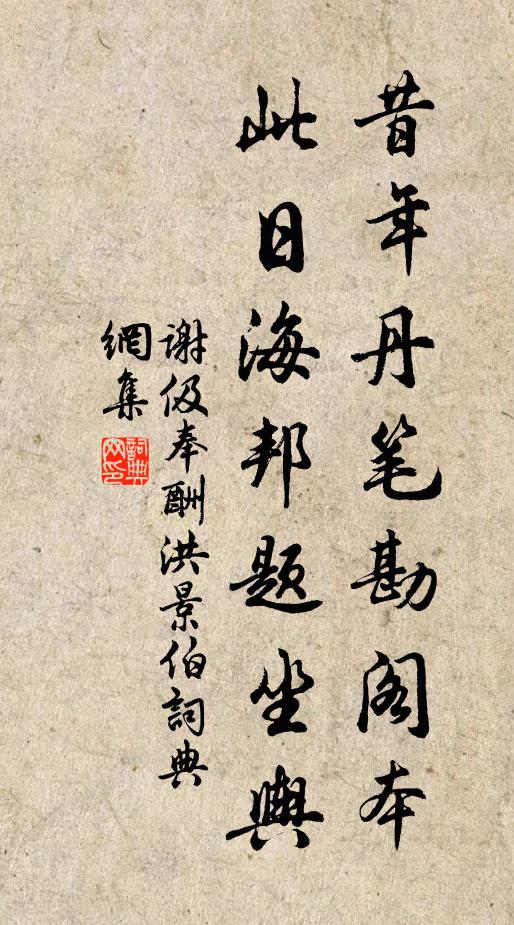 昔年丹笔勘阁本
此日海邦题坐舆
谢伋奉酬洪景伯詞典
網集
詞典網印